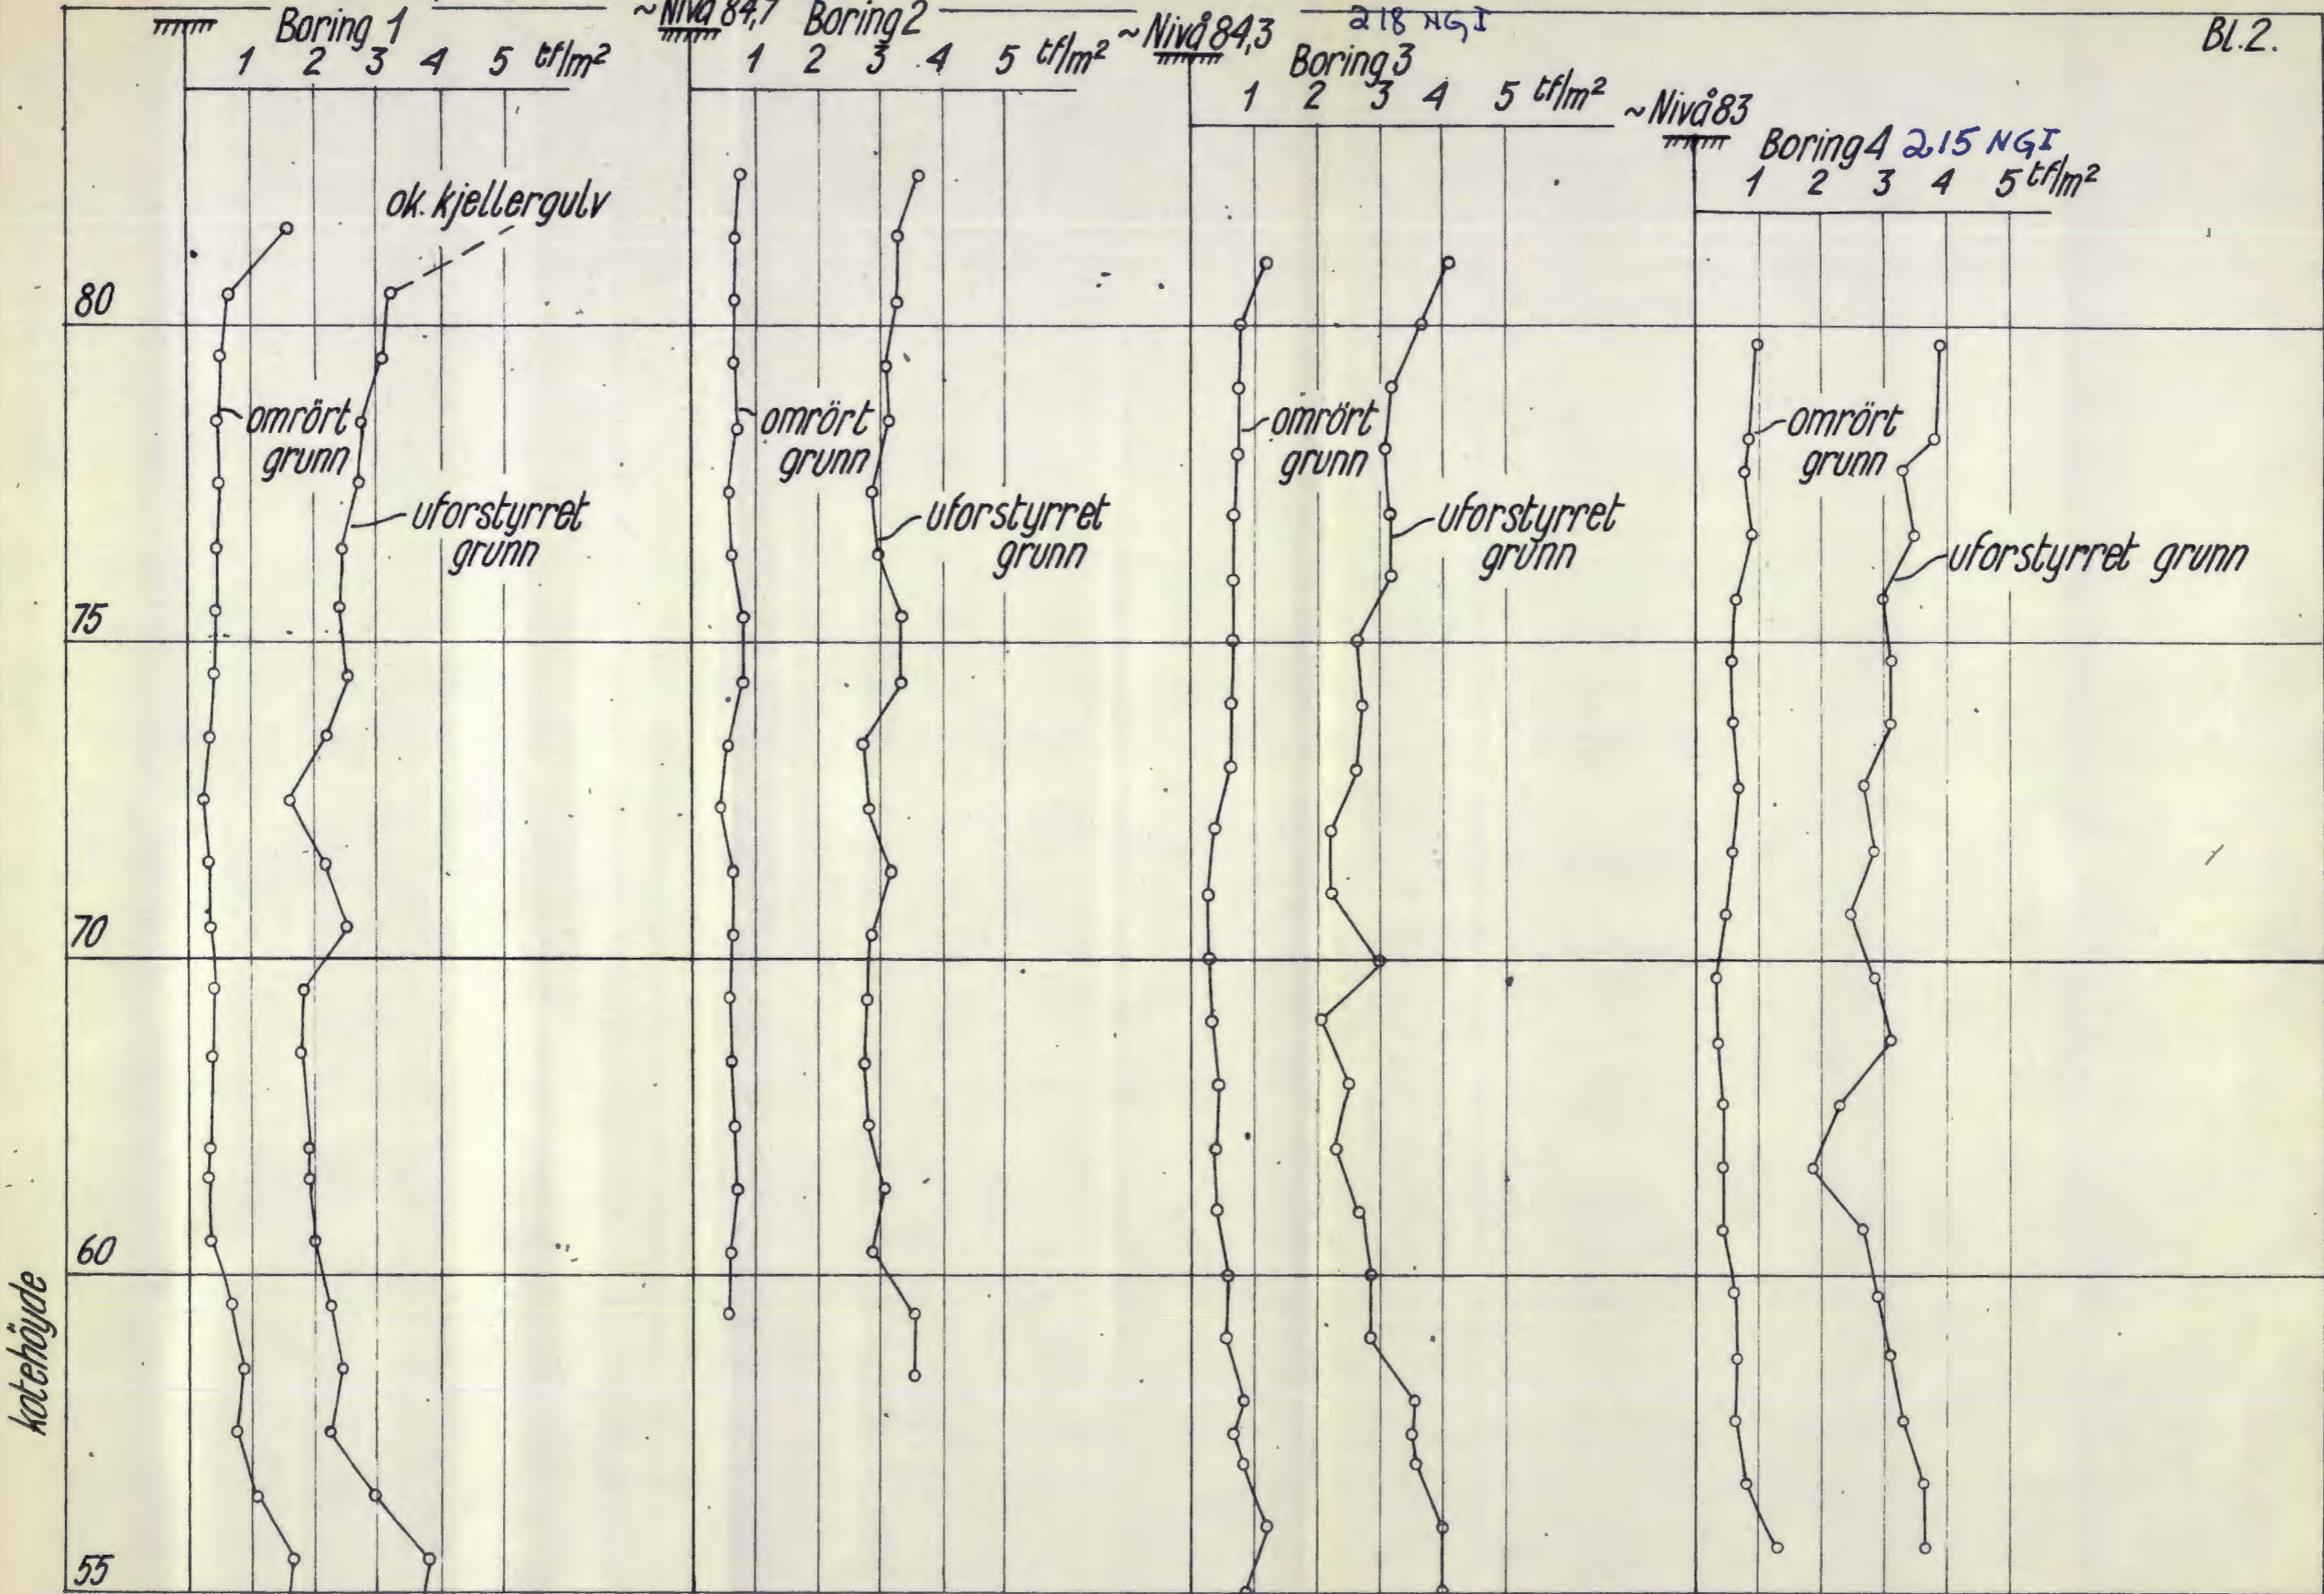 Boring 1
1 2 3 4 5 tf/m²
~Nivå 84,7
Boring 2
1 2 3 4 5 tf/m²
~Nivå 84,3
218 NGI
Boring 3
1 2 3 4 5 tf/m²
~Nivå 83
Boring 4 215 NGI
1 2 3 4 5 tf/m²
Bl.2.
ok. kjellergulv
80
omrört
grunn
uforstyrret
grunn
omrört
grunn
uforstyrret
grunn
omrört
grunn
uforstyrret
grunn
omrört
grunn
uforstyrret grunn
75
70
60
55
kotehöyde